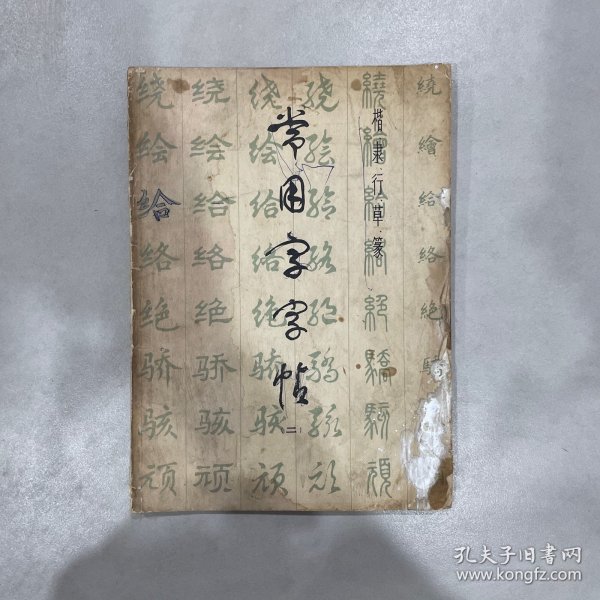 常用字字帖
二
楷·隶·行·草·篆
绕 绕 绕 绕 繞 繞
绘 绘 绘 绘 繪 繪
给 给 给 给 給 給
络 络 络 络 絡
绝 绝 绝 绝 絕 絕
骄 骄 骄 骄 驕
骇 骇 骇 骇 駭
顽 顽 顽 顽 頑
孔夫子旧书网
www.kongfz.com